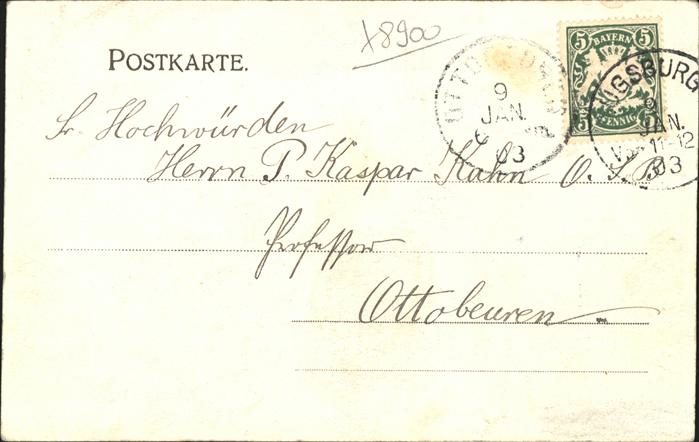 x8900
POSTKARTE.
5 BAYERN 5
5 PFENNIG 5
OTTOBEUREN
9
JAN.
03
AUGSBURG
JAN.
V. 11-12
03
Sr. Hochwürden
Herrn P. Kaspar Kuhn O. S. B.
Professor
Ottobeuren